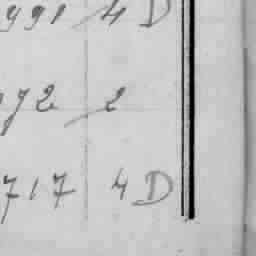 991 4 D
72 2
717 4 D